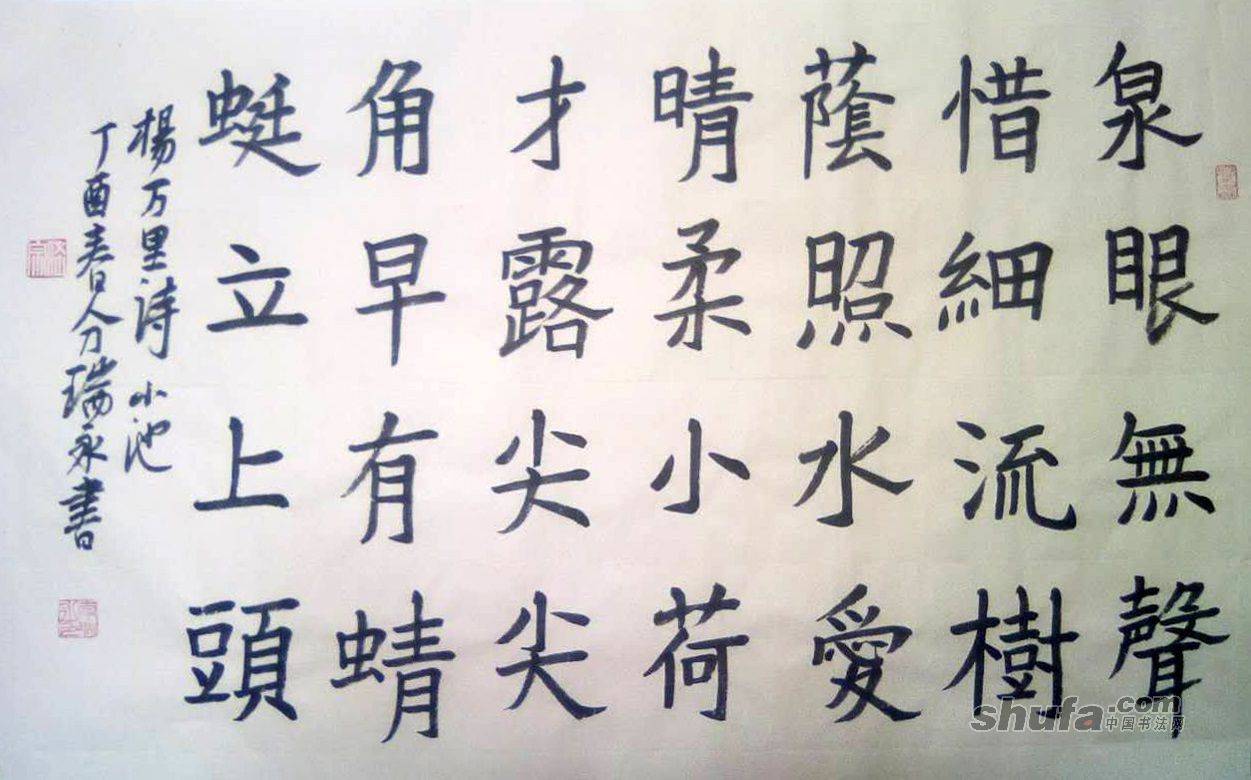 泉眼無聲
惜細流樹
蔭照水愛
晴柔小荷
才露尖尖
角早有蜻
蜓立上頭
楊万里詩小池
丁酉春人分瑞永書
shufa.com
中国书法网